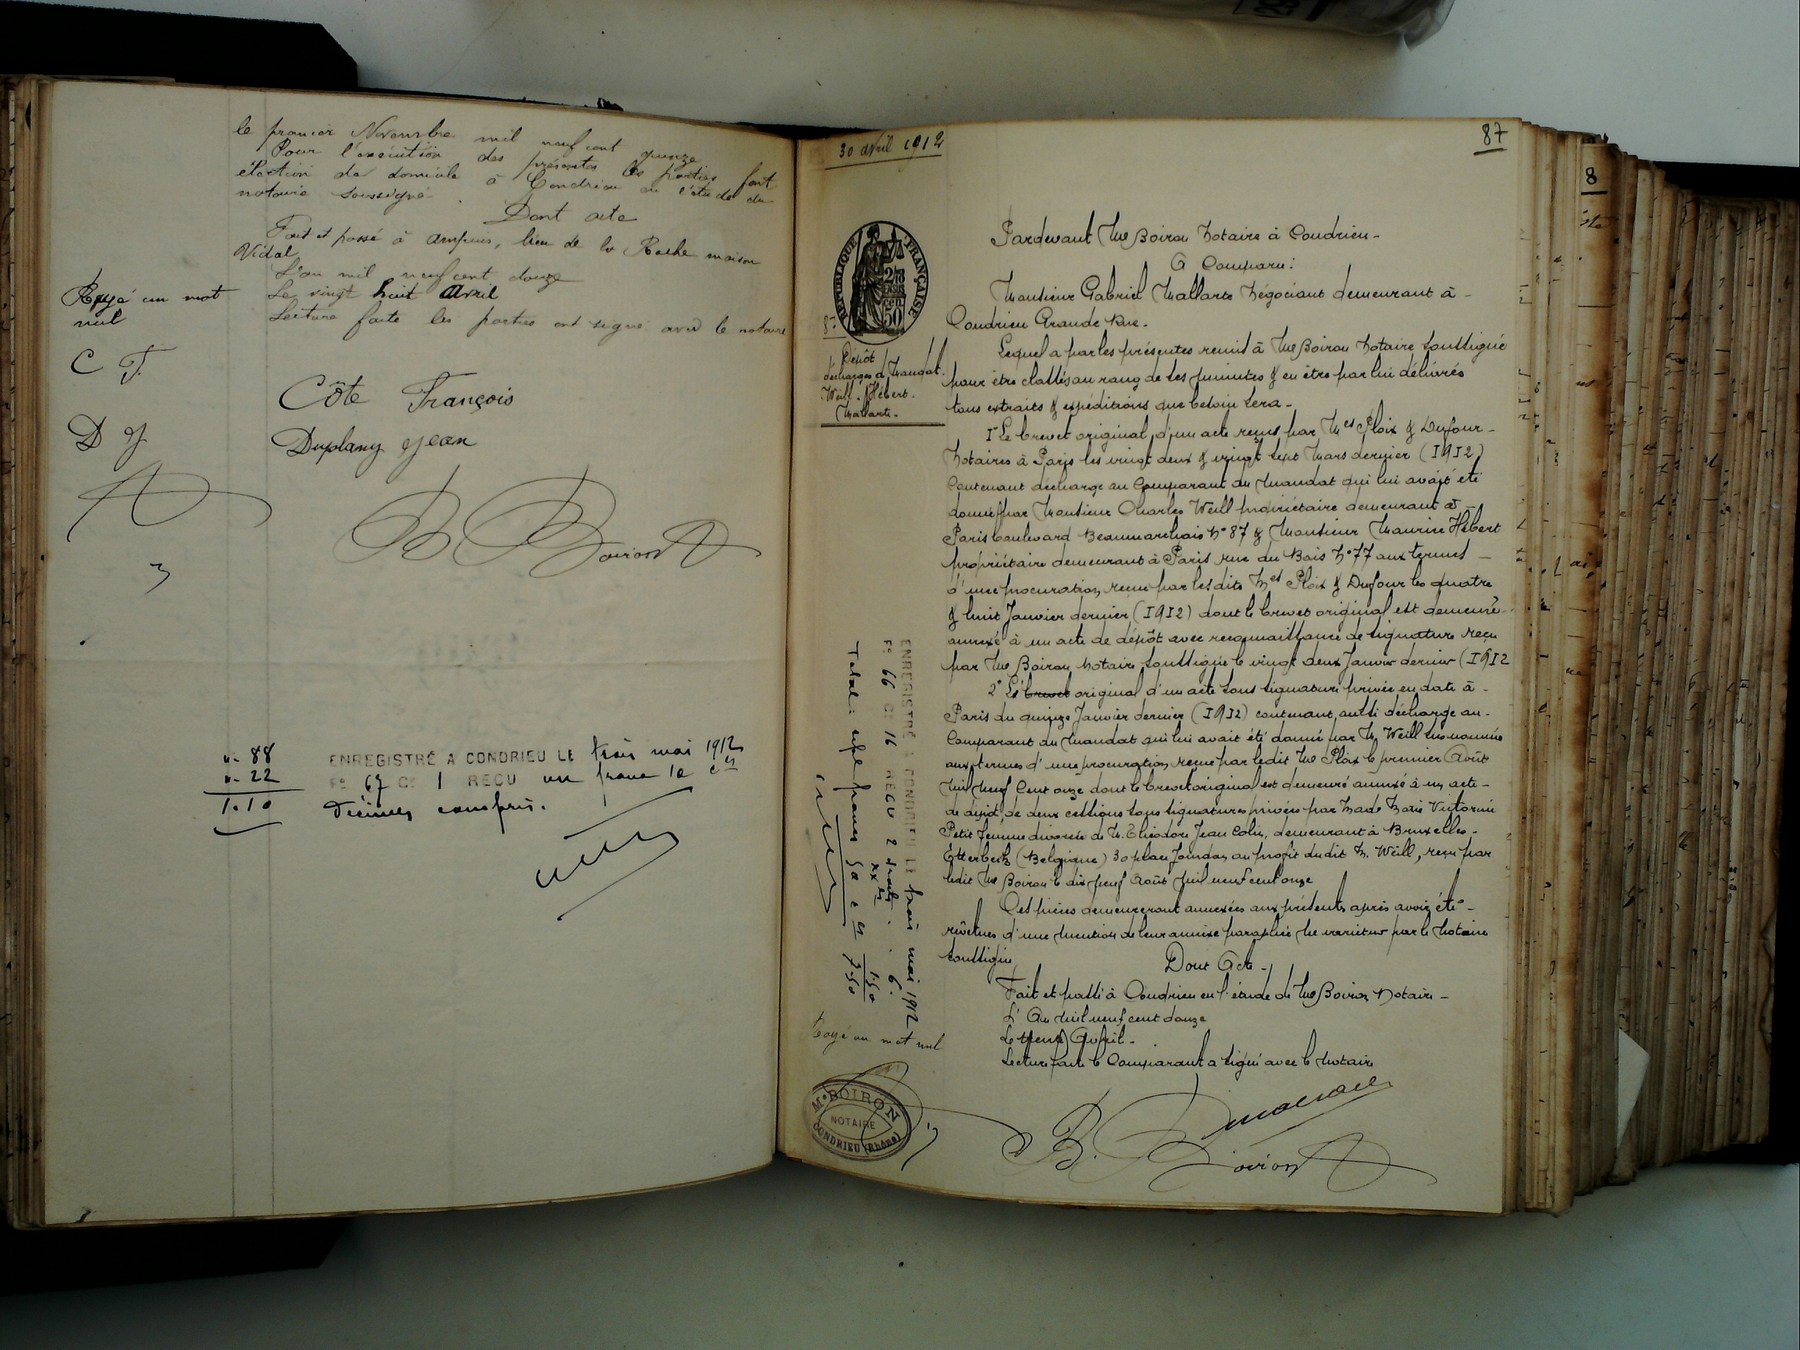 le premier Novembre mil neuf cent quinze
Pour l'exécution des présentes les parties font
élection de domicile à Condrieu en l'étude du
notaire soussigné.
Dont acte
Fait et passé à Ampuis, lieu de la Roche maison
Vidal
L'an mil neuf cent douze
Le vingt huit Avril
Lecture faite les parties ont signé avec le notaire
Rayé un mot
nul
C F.
D J
Côte François
Duplany Jean
B Boiron
88
22
1.10
ENREGISTRÉ A CONDRIEU LE trois mai 1912
F° 67 C. 1 REÇU un franc 10 c
décimes compris.
30 avril 1912
87
8
RÉPUBLIQUE FRANÇAISE
50
Dépôt
décharges de Mandat
Weill. Hébert.
Mallarte.
Pardevant Me Boiron Notaire à Condrieu -
A Comparu:
Monsieur Gabriel Mallarte Négociant demeurant à -
Condrieu Grande Rue.
Lequel a par les présentes remis à Me Boiron Notaire soussigné
pour être classés au rang de ses minutes & en être par lui délivrés
tous extraits & expéditions que besoin sera -
1° Le brevet original d'un acte reçus par Mes Ploix & Dufour -
Notaires à Paris les vingt deux & vingt sept Mars dernier (1912)
Contenant décharge au Comparant du Mandat qui lui avait été
donné par Monsieur Charles Weill propriétaire demeurant à -
Paris boulevard Beaumarchais N° 87 & Monsieur Maurice Hébert
propriétaire demeurant à Paris rue du Bois N° 77 aux termes -
d'une procuration reçue par les dits Mes Ploix & Dufour les quatre
& huit Janvier dernier (1912) dont le brevet original est demeuré
annexé à un acte de dépôt avec reconnaissance de signature reçu
par Me Boiron Notaire soussigné le vingt deux Janvier dernier (1912
2° L' brevet original d'un acte sous signature privée en date à -
Paris du quinze Janvier dernier (1912) contenant aussi décharge au -
Comparant du Mandat qui lui avait été donné par M. Weill sus nommé
aux termes d'une procuration reçue par ledit Me Ploix le premier Août
Mil neuf Cent onze dont le brevet original est demeuré annexé à un acte -
de dépôt de deux cessions sous signatures privées par Made Marie Victorine
Petit femme divorcée de M. Eliodore Jean Colin, demeurant à Bruxelles -
Etterbeck (Belgique) 30 place Jourdan au profit dudit M. Weill, reçu par
ledit Me Boiron le dix neuf Août Mil neuf cent onze
Ces pièces demeureront annexées aux présentes après avoir été -
revêtues d'une mention de leur annexe paraphée Ne varietur par le Notaire
soussigné
Dont Acte -
Fait et passé à Condrieu en l'étude de Me Boiron Notaire -
L'An Mil neuf cent douze
Le trente Avril -
Lecture faite le Comparant a signé avec le Notaire
ENREGISTRÉ A CONDRIEU LE trois mai 1912
F° 66 C. 16 REÇU 2 droits 6.
1.50
Total: sept francs 50 c 7.50
Rayé un mot nul
Me BOIRON
NOTAIRE
CONDRIEU (Rhône)
B. Boiron